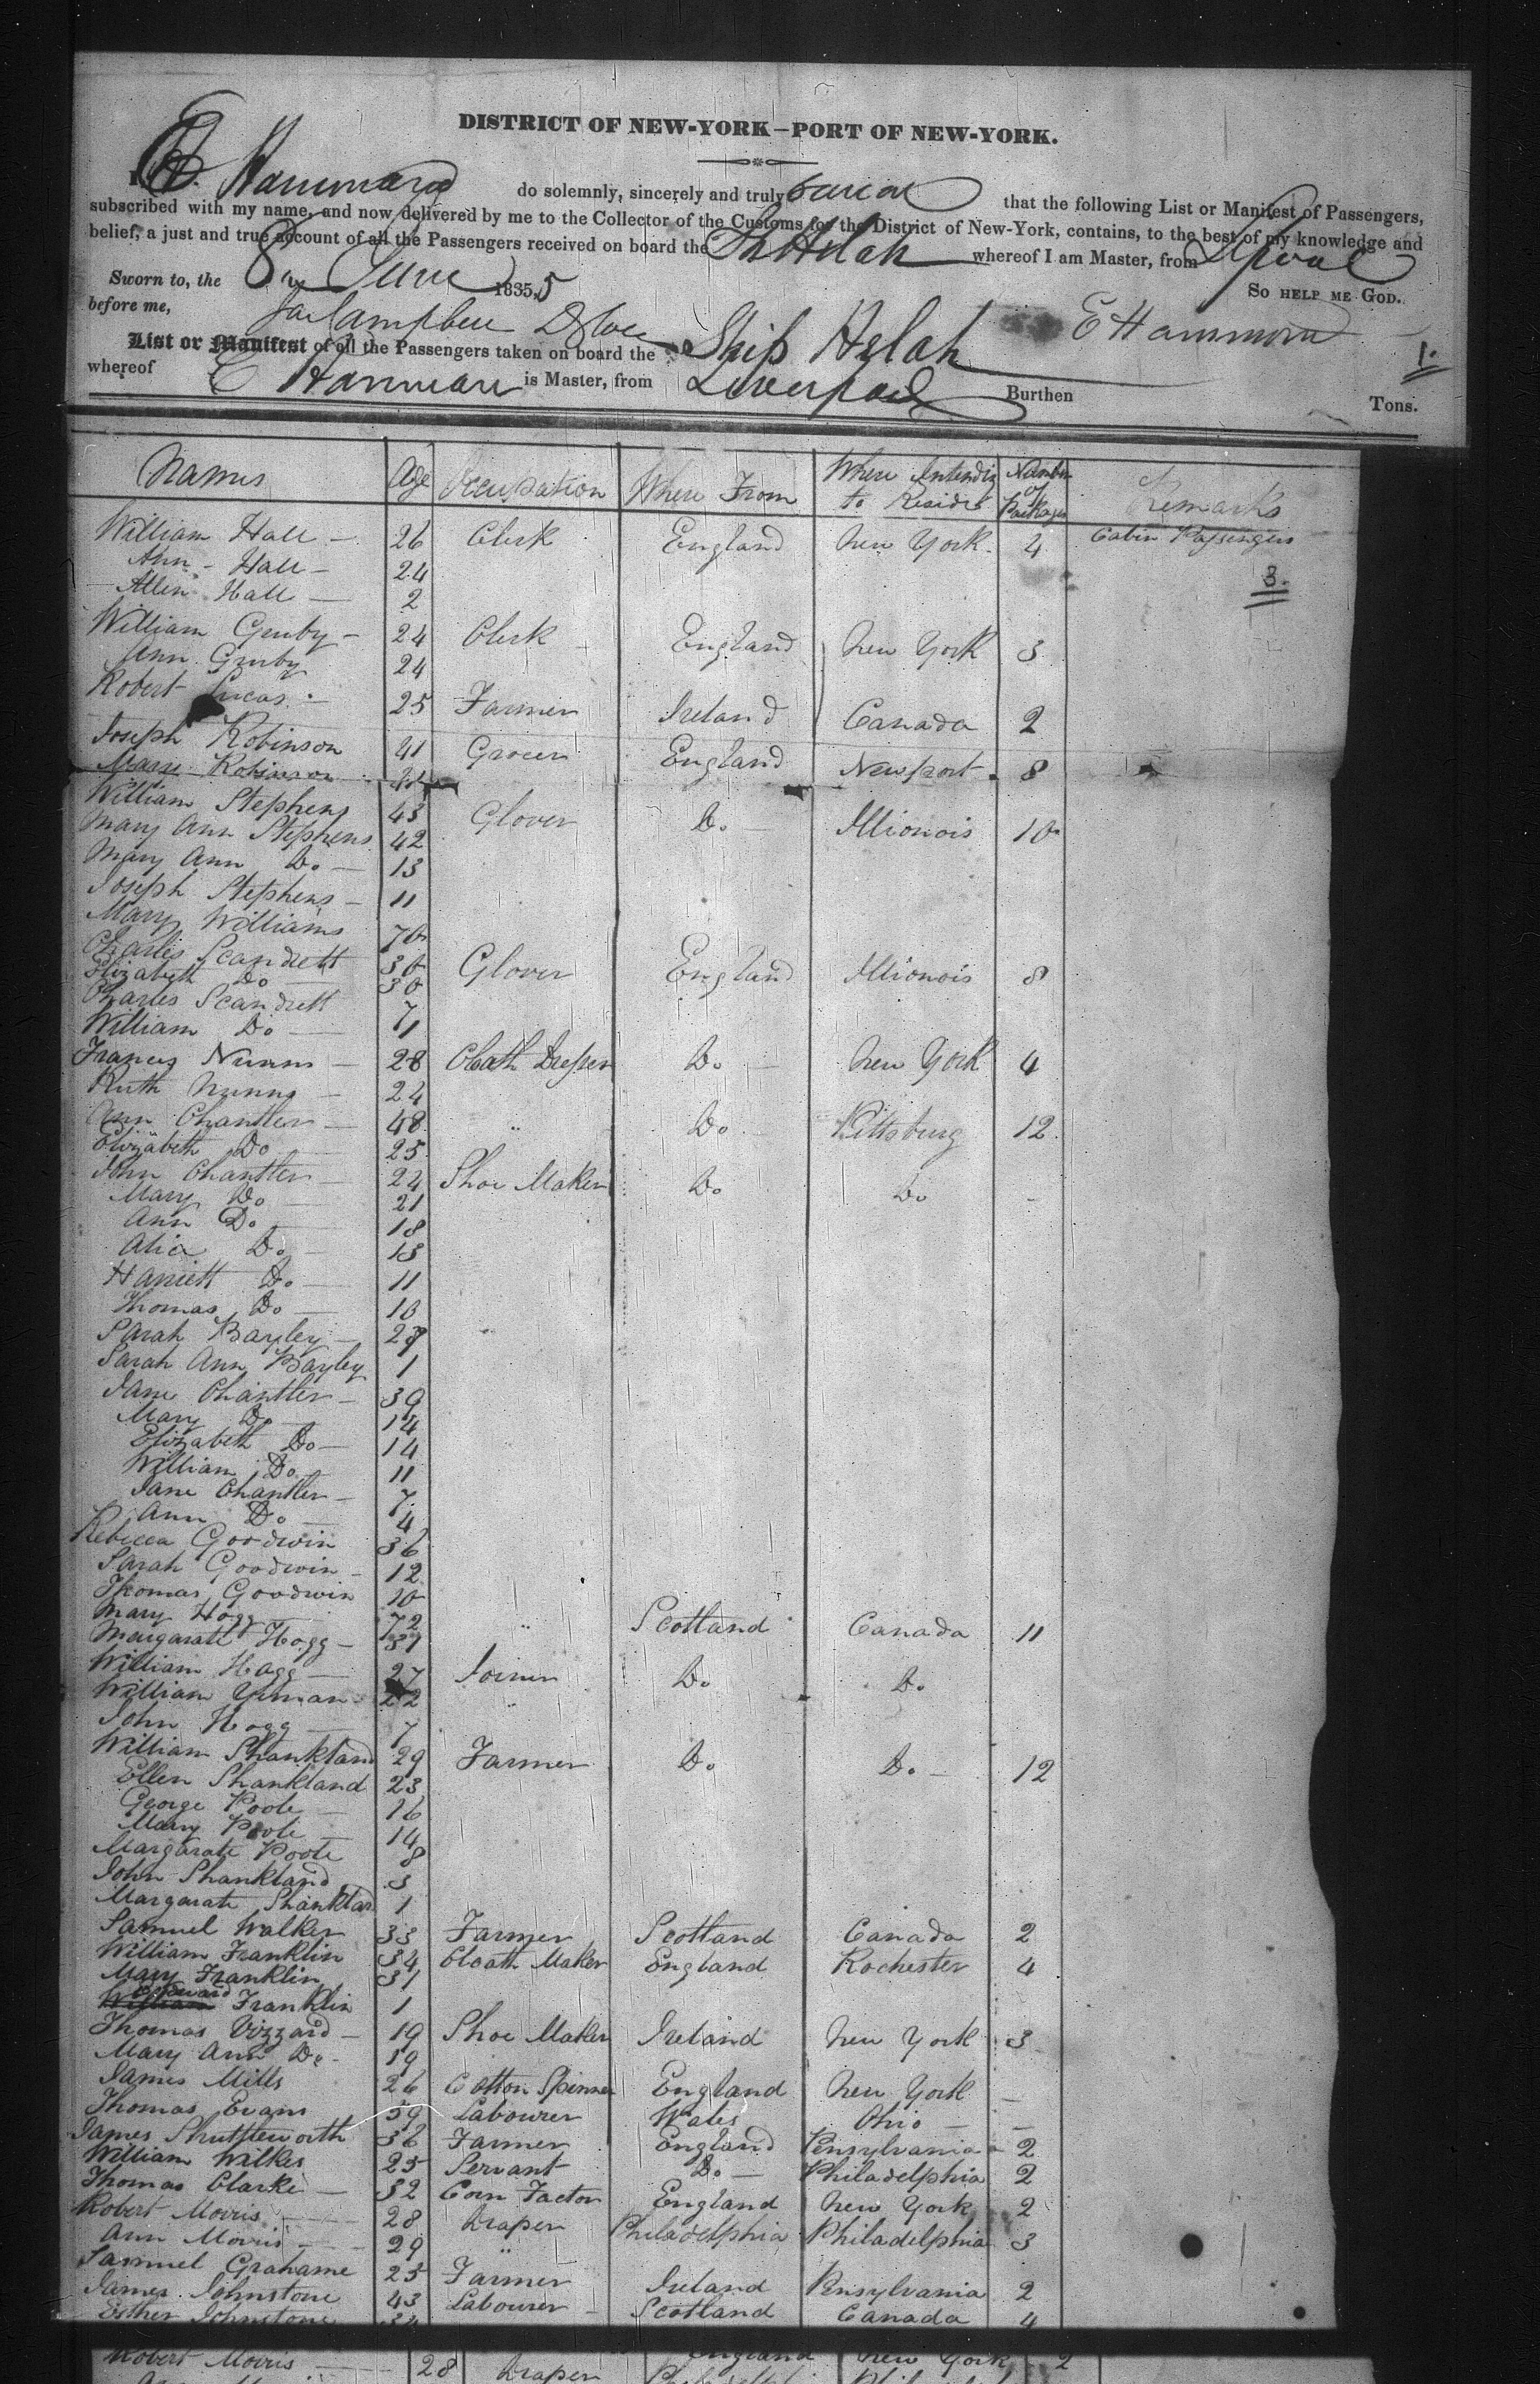 DISTRICT OF NEW-YORK—PORT OF NEW-YORK.
I, E Hammond do solemnly, sincerely and truly that the following List or Manifest of Passengers,
subscribed with my name, and now delivered by me to the Collector of the Customs for the District of New-York, contains, to the best of my knowledge and
belief, a just and true account of all the Passengers received on board the Sh Helah whereof I am Master, from Lpool
Sworn to, the 8 June 1835, 5 SO HELP ME GOD.
before me, E Hammond
List or Manifest of all the Passengers taken on board the Ship Helah 1.
whereof E Hammond is Master, from Liverpool Burthen Tons.
Names Age Occupation Where From Where Intending to Reside Number of Packages Remarks
William Hall — 26 Clerk England New York 4 Cabin Passengers
Ann - Hall — 24 3.
Allen Hall — 2
William Gruby — 24 Clerk England New York 3
Ann Gruby 24
Robert Lucas — 25 Farmer Ireland Canada 2
Joseph Robinson 41 Grocer England Newport 8
Robinson
William Stephens 43 Glover Do. — Illionois 10
Mary Ann Stephens 42
Mary Ann Do. — 13
Joseph Stephens — 11
Mary Williams 70
Charles Scandrett 30 Glover England Illionois 8
Elizabeth Do 30
Charles Scandrett 7
William Do — 1
Francis Nunns — 28 Cloath Dresser Do. — New York 4
Ruth Nunns — 24
Ann Chantler — 48 " Do — Pittsburg 12
Elizabeth Do — 25
John Chantler — 24 Shoe Maker Do Do -
Mary Do — 21
Ann Do. — 18
Alice Do. — 13
Harriett Do. — 11
Thomas Do — 10
Sarah Bayley — 29 "
Sarah Ann Bayley 1
Jane Chantler — 39
Mary Do — 14
Elizabeth Do — 14
William Do. — 11
Jane Chantler — 7
Ann Do — 4
Rebecca Goodwin 36
Sarah Goodwin — 12
Thomas Goodwin 10
Mary Hogg 72 " Scotland Canada 11
Margarett Hogg — 31
William Hogg — 27 Joiner Do. Do.
William 22 "
John Hogg — 7
William Shankland 29 Farmer Do Do. — 12
Ellen Shankland 23
George Poole — 16
Mary Poole — 14
Margarate Poole 8
John Shankland 3
Margarate Shanklan 1
Samuel Walker 33 Farmer Scotland Canada 2
William Franklin 34 Cloath Maker England Rochester 4
Mary Franklin 31
Edward Franklin 1
Thomas Vizzard — 19 Shoe Maker Ireland New York 3
Mary Ann Do - 19
James Mills 26 Cotton Spinner England New York —
Thomas Evans 59 Labourer Wales Ohio — —
James Shuttleworth 36 Farmer England Pensylvania 2
William Wilkes 25 Servant Do. — Philadelphia 2
Thomas Clarke — 32 Corn Factor England New York 2
Robert Morris — 28 Draper Philadelphia Philadelphia 3
Ann Morris — 29 "
Samuel Grahame 25 Farmer Ireland Pensylvania 2
James Johnstone 43 Labourer — Scotland Canada 4
Esther Johnstone 34
England New York 2
Robert Morris — 28 Draper